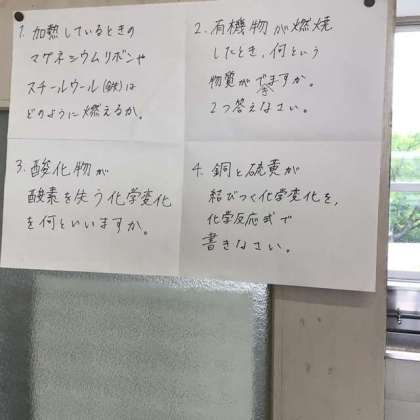 1. 加熱しているときの
マグネシウムリボンや
スチールウール(鉄)は
どのように燃えるか。
2. 有機物が燃焼
したとき、何という
物質がでますか。
2つ答えなさい。
3. 酸化物が
酸素を失う化学変化
を何といいますか。
4. 銅と硫黄が
結びつく化学変化を、
化学反応式で
書きなさい。